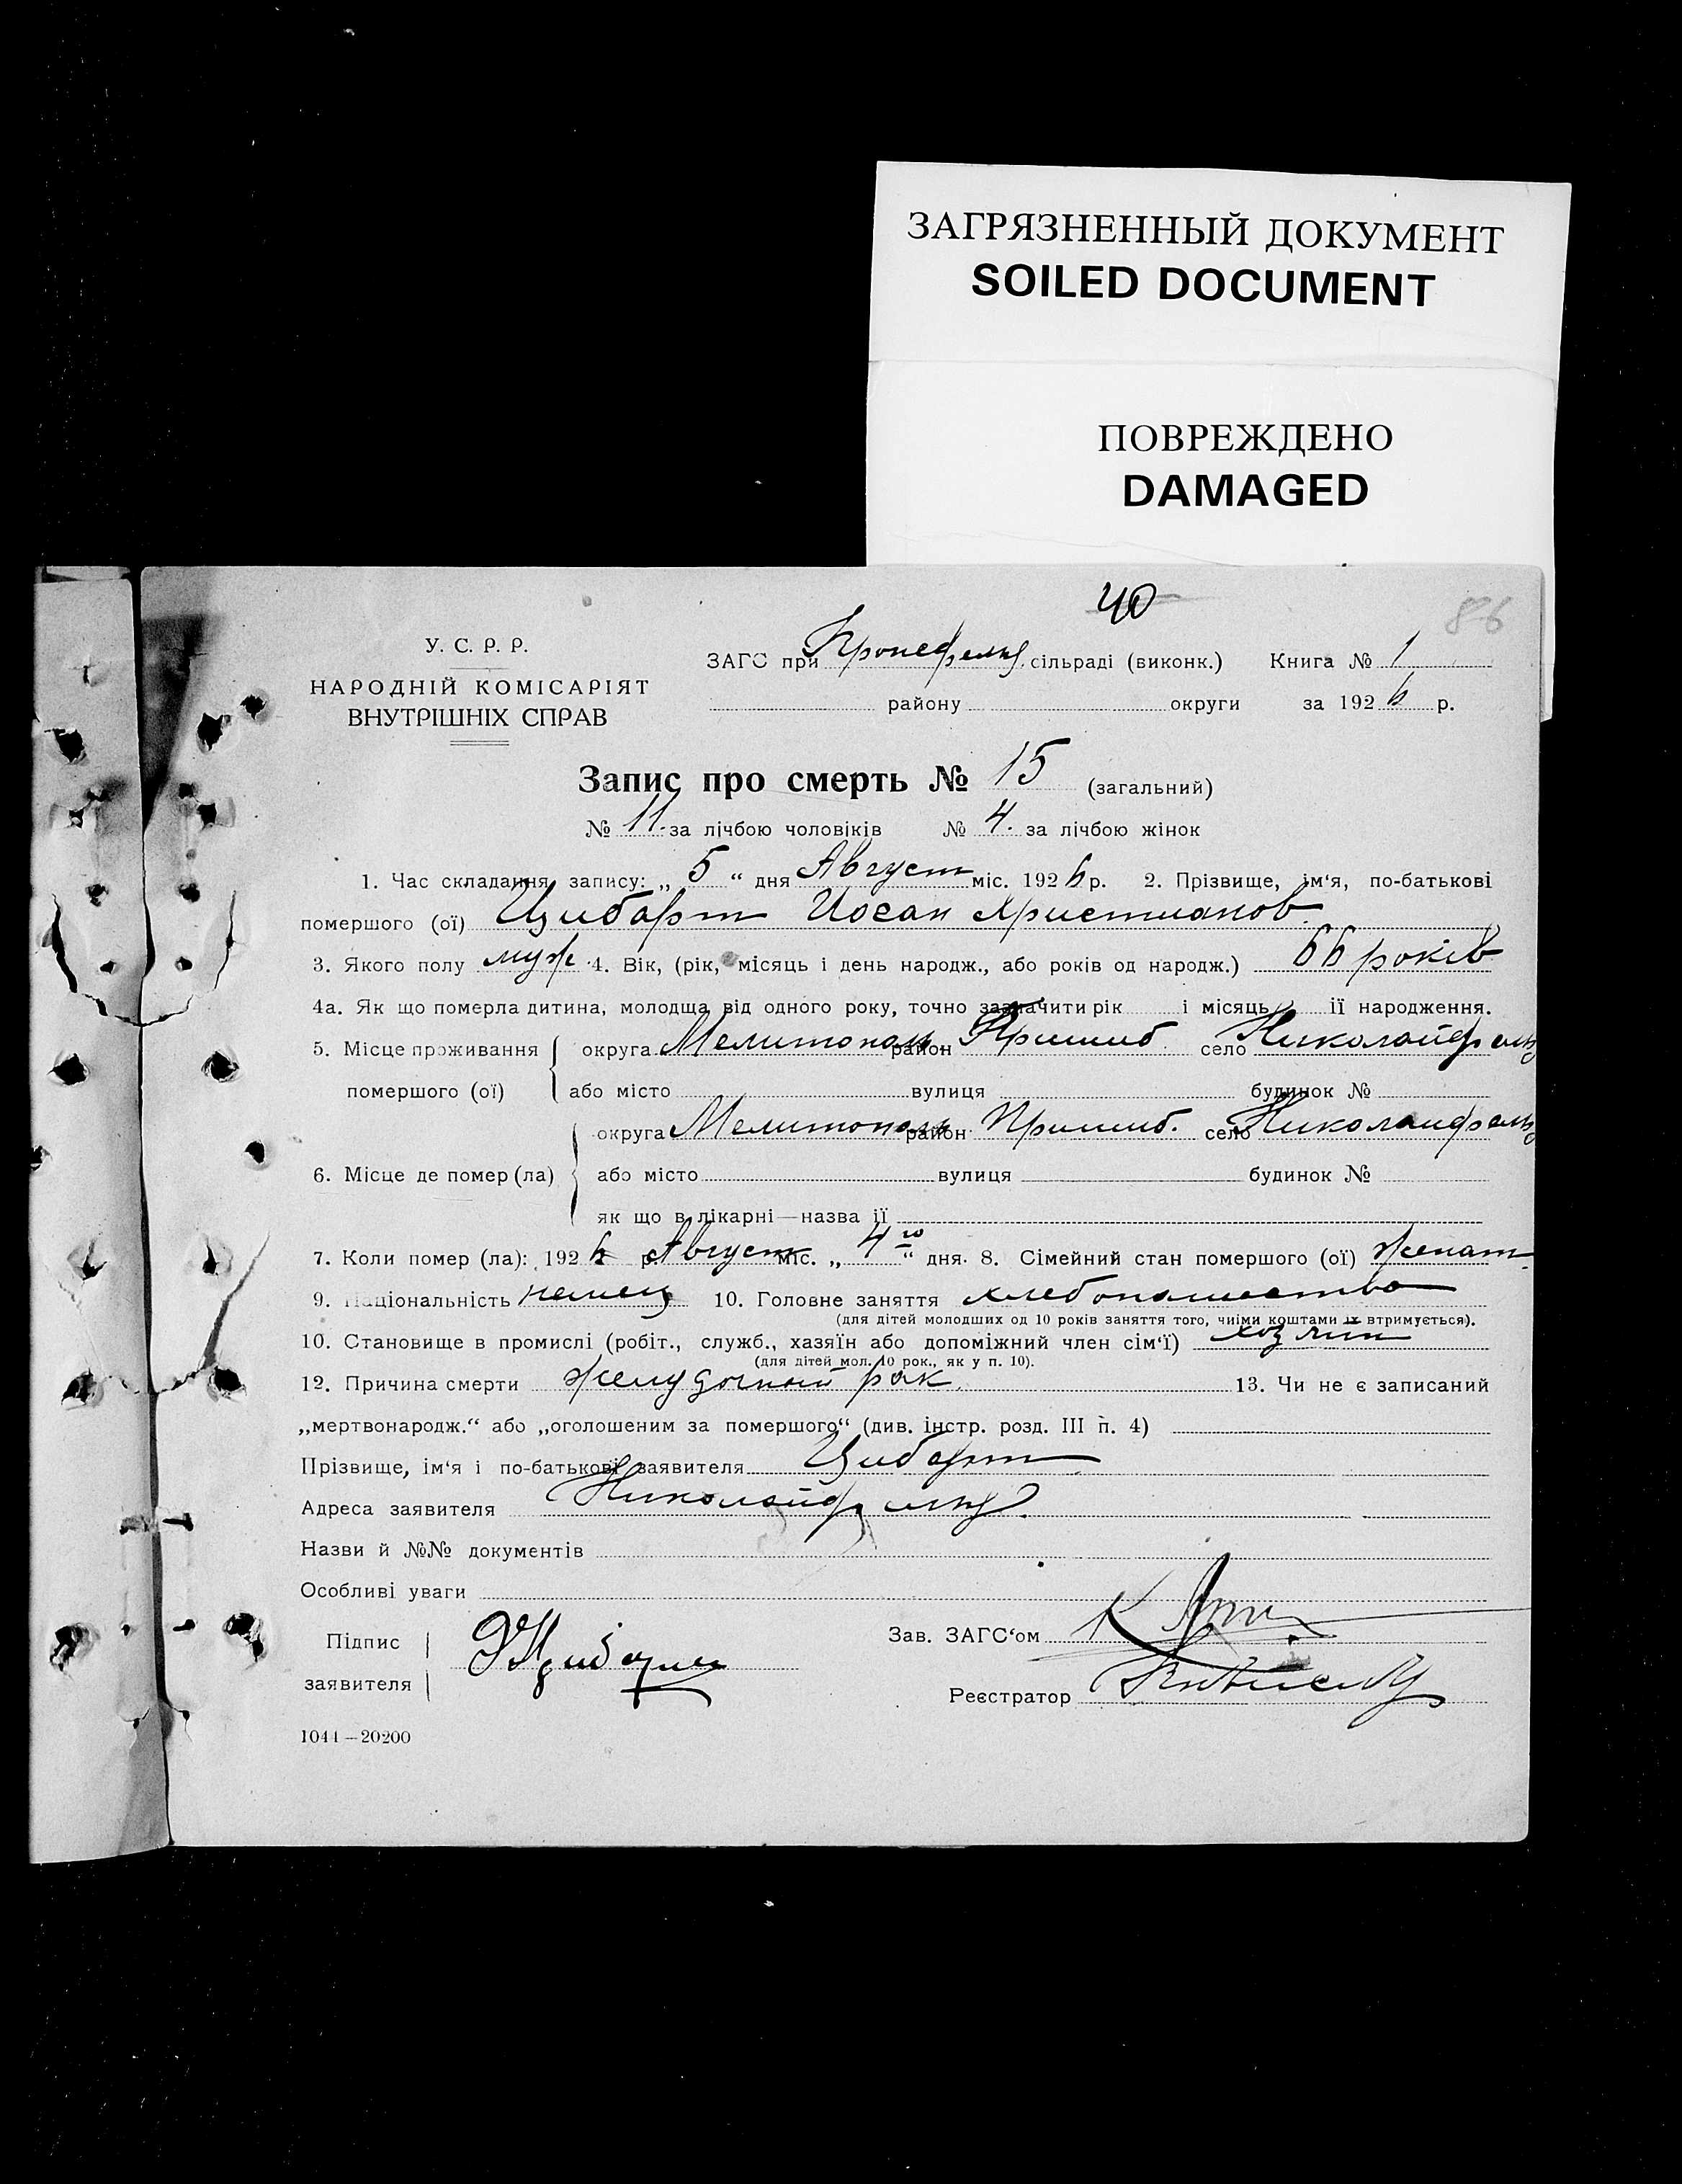 ЗАГРЯЗНЕННЫЙ ДОКУМЕНТ
SOILED DOCUMENT
ПОВРЕЖДЕНО
DAMAGED
40
86
У. С. Р. Р.
НАРОДНІЙ КОМІСАРІЯТ
ВНУТРІШНІХ СПРАВ
ЗАГС при Кронефельд сільраді (виконк.) Книга № 1
району округи за 1926 р.
Запис про смерть № 15 (загальний)
№ 11. за лічбою чоловіків № 4. за лічбою жінок
1. Час складання запису: „ 5 “ дня Август міс. 1926 р. 2. Прізвище, ім‘я, по-батькові
помершого (ої) Цибарт Иоган Христианов.
3. Якого полу муж. 4. Вік, (рік, місяць і день народж., або років од народж.) 66 років
4а. Як що померла дитина, молодща від одного року, точно зазначити рік і місяць ії народження.
5. Місце проживання помершого (ої) округа Мелитополь район Пришиб. село Николайфельд
або місто вулиця будинок №
6. Місце де помер (ла) округа Мелитополь район Пришиб. село Николайфельд
або місто вулиця будинок №
як що в лікарні—назва ії
7. Коли помер (ла): 1926 р. Август міс. „ 4го “ дня. 8. Сімейний стан помершого (ої) женат.
9. Національність немец 10. Головне заняття хлебопашество
(для дітей молодших од 10 років заняття того, чиїми коштами їх втримується).
10. Становище в промислі (робіт., служб., хазяїн або допоміжний член сім‘ї) хозяин
(для дітей мол. 10 рок., як у п. 10).
12. Причина смерти желудочный рак. 13. Чи не є записаний
„мертвонародж.“ або „оголошеним за помершого“ (див. інстр. розд. III п. 4)
Прізвище, ім‘я і по-батькові заявителя Цибарт
Адреса заявителя Николайфельд.
Назви й №№ документів
Особливі уваги
Підпис заявителя
Зав. ЗАГС‘ом
Реєстратор
1041—20200